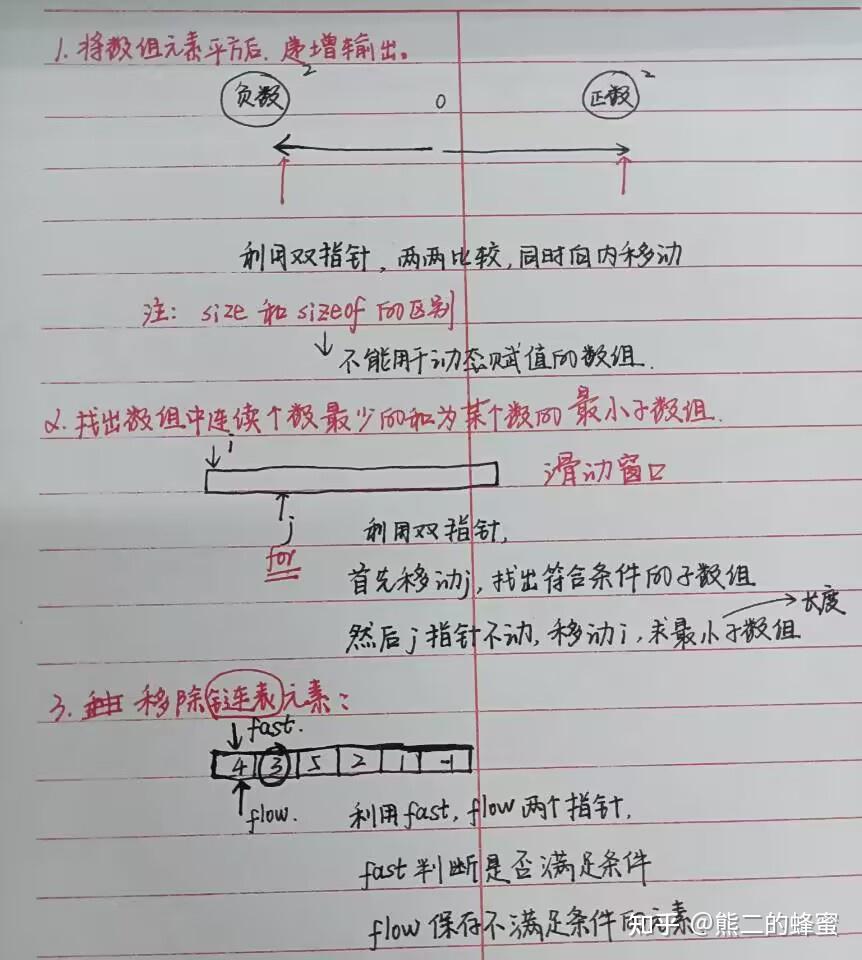 1. 将数组元素平方后,递增输出。
负数² 0 正数²
利用双指针,两两比较,同时向内移动
注: size 和 sizeof 的区别
↓不能用于动态赋值的数组.
2. 找出数组中连续个数最少的和为某个数的最小子数组.
i
滑动窗口
j
利用双指针,
for
首先移动j,找出符合条件的子数组
→长度
然后j指针不动,移动i,求最小子数组
3. 移除链表元素:
fast.
4 3 5 2 1 -1
flow.
利用fast, flow两个指针,
fast判断是否满足条件
flow保存不满足条件的元素
知乎 @熊二的蜂蜜